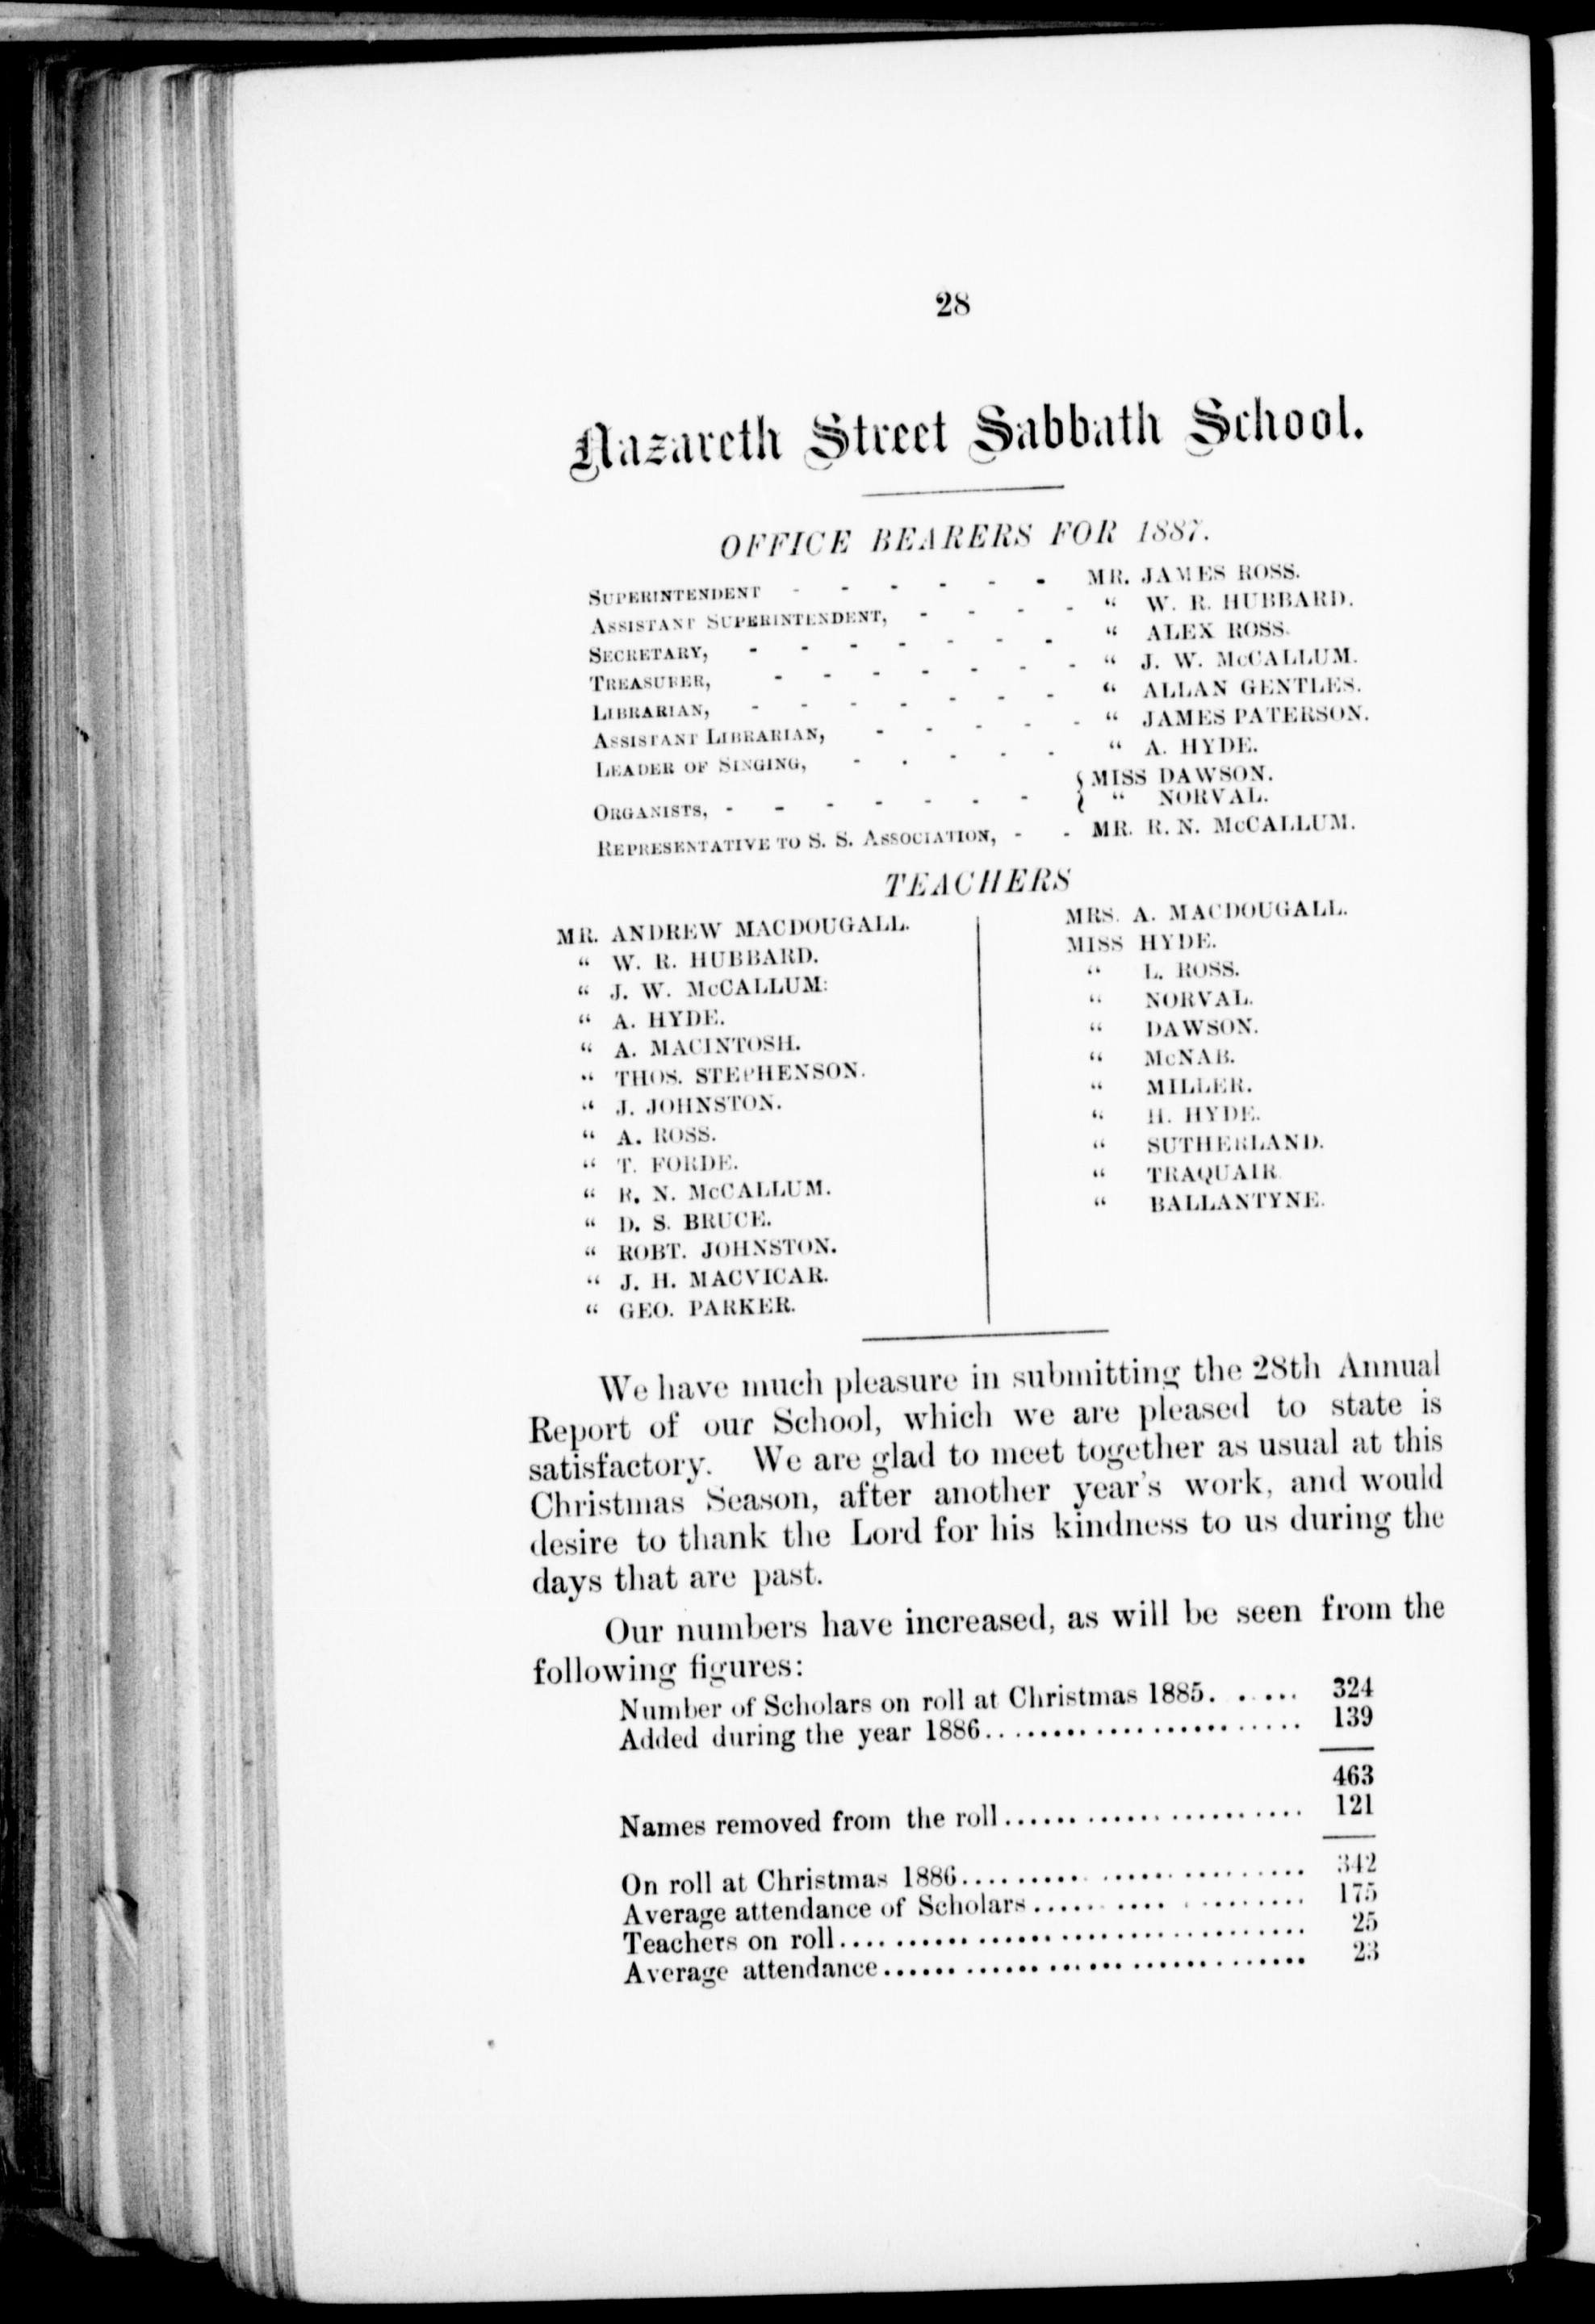 28
Nazareth Street Sabbath School.
OFFICE BEARERS FOR 1887.
SUPERINTENDENT - - - - - - MR. JAMES ROSS.
ASSISTANT SUPERINTENDENT, - - - - " W. R. HUBBARD.
SECRETARY, - - - - - - - " ALEX ROSS.
TREASURER, - - - - - - - " J. W. McCALLUM.
LIBRARIAN, - - - - - - - " ALLAN GENTLES.
ASSISTANT LIBRARIAN, - - - - - " JAMES PATERSON.
LEADER OF SINGING, - - - - - " A. HYDE.
ORGANISTS, - - - - - - - { MISS DAWSON.
" NORVAL.
REPRESENTATIVE TO S. S. ASSOCIATION, - - MR. R. N. McCALLUM.
TEACHERS
MR. ANDREW MACDOUGALL.
" W. R. HUBBARD.
" J. W. McCALLUM:
" A. HYDE.
" A. MACINTOSH.
" THOS. STEPHENSON.
" J. JOHNSTON.
" A. ROSS.
" T. FORDE.
" R. N. McCALLUM.
" D. S. BRUCE.
" ROBT. JOHNSTON.
" J. H. MACVICAR.
" GEO. PARKER.
MRS. A. MACDOUGALL.
MISS HYDE.
" L. ROSS.
" NORVAL.
" DAWSON.
" McNAB.
" MILLER.
" H. HYDE.
" SUTHERLAND.
" TRAQUAIR
" BALLANTYNE.
We have much pleasure in submitting the 28th Annual
Report of our School, which we are pleased to state is
satisfactory. We are glad to meet together as usual at this
Christmas Season, after another year's work, and would
desire to thank the Lord for his kindness to us during the
days that are past.
Our numbers have increased, as will be seen from the
following figures:
Number of Scholars on roll at Christmas 1885. . .... 324
Added during the year 1886........................ 139
463
Names removed from the roll........................ 121
On roll at Christmas 1886........................ 342
Average attendance of Scholars.................... 175
Teachers on roll.................................. 25
Average attendance................................ 23